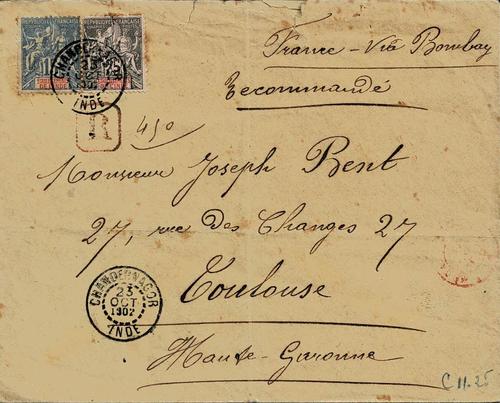 REPUBLIQUE FRANÇAISE REPUBLIQUE FRANÇAISE
CHANDERNAGOR
23
OCT
1902
INDE
France - Via Bombay
Recommandé
R
450
Monsieur Joseph Bent
27, rue des Changes 27
Toulouse
Haute-Garonne
CHANDERNAGOR
23
OCT
1902
INDE
C 11.25